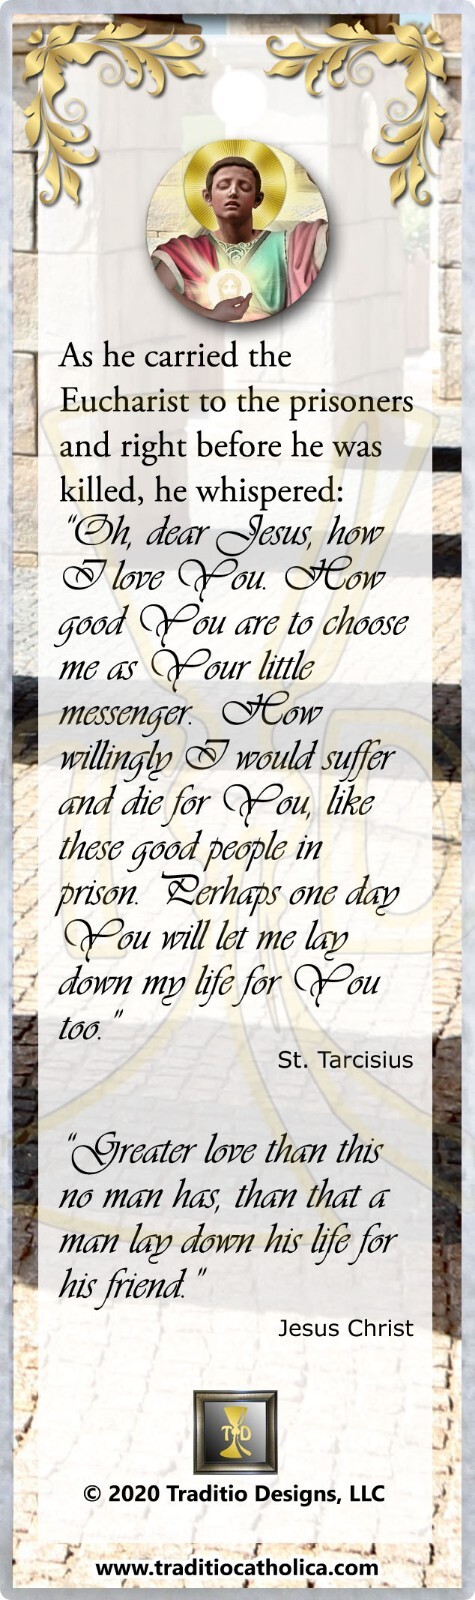 As he carried the
Eucharist to the prisoners
and right before he was
killed, he whispered:
"Oh, dear Jesus, how
I love You. How
good You are to choose
me as Your little
messenger. How
willingly I would suffer
and die for You, like
these good people in
prison. Perhaps one day
You will let me lay
down my life for You
too."
St. Tarcisius
"Greater love than this
no man has, than that a
man lay down his life for
his friend."
Jesus Christ
T D
© 2020 Traditio Designs, LLC
www.traditiocatholica.com